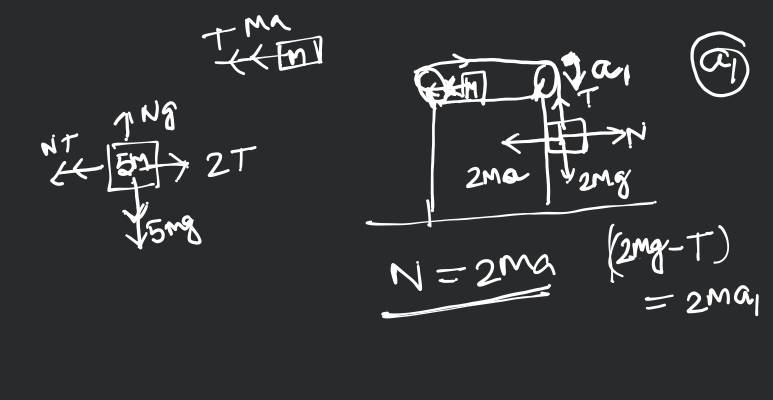 T Ma
m
a1
M
a1
T
Ng
NT
5M
2T
N
2Ma
2Mg
5mg
N = 2Ma
(2Mg-T)
= 2Ma1